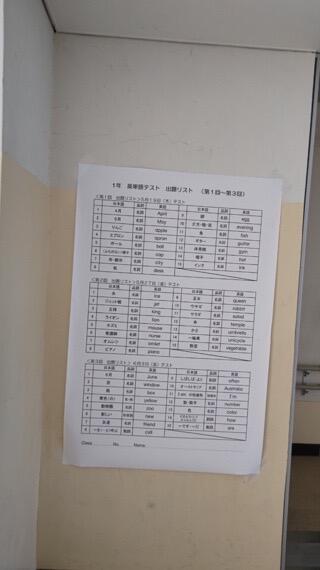 1年 英単語テスト 出題リスト (第1回~第3回)
<第1回 出題リスト>5月19日(木)テスト
日本語 品詞 英語 日本語 品詞 英語
1 4月 名詞 April 9 卵 名詞 egg
2 5月 名詞 May 10 夕方・晩 名詞 evening
3 りんご 名詞 apple 11 魚 名詞 fish
4 エプロン 名詞 apron 12 ギター 名詞 guitar
5 ボール 名詞 ball 13 体育館 名詞 gym
6 (ふちのない)帽子 名詞 cap 14 帽子 名詞 hat
7 市・都市 名詞 city 15 インク 名詞 ink
8 机 名詞 desk
<第2回 出題リスト>5月27日(金)テスト
日本語 品詞 英語 日本語 品詞 英語
1 氷 名詞 ice 9 女王 名詞 queen
2 ジェット機 名詞 jet 10 ウサギ 名詞 rabbit
3 王様 名詞 king 11 サラダ 名詞 salad
4 ライオン 名詞 lion 12 寺 名詞 temple
5 ネズミ 名詞 mouse 13 かさ 名詞 umbrella
6 看護師 名詞 nurse 14 一輪車 名詞 unicycle
7 オムレツ 名詞 omelet 15 野菜 名詞 vegetable
8 ピアノ 名詞 piano
<第3回 出題リスト>6月3日(金)テスト
日本語 品詞 英語 日本語 品詞 英語
1 6月 名詞 June 9 しばしば・よく 副詞 often
2 窓 名詞 window 10 オーストラリア 名詞 Australia
3 箱 名詞 box 11 I am の短縮形 I'm
4 黄色(の) yellow 12 数・番号 名詞 number
5 動物園 名詞 zoo 13 色 名詞 color
6 新しい 形容詞 new 14 how
7 友達 名詞 friend 15 ~です・~だ 動詞 are
8 動詞 call
Class No. Name